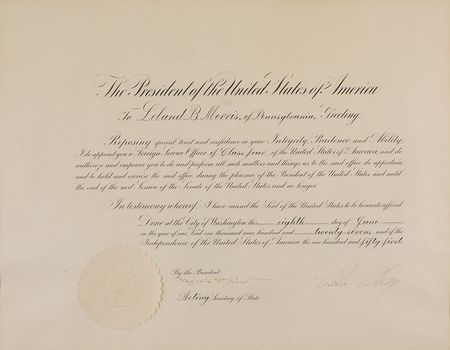 The President of the United States of America
To Leland B. Morris, of Pennsylvania, Greeting:
Reposing special trust and confidence in your Integrity, Prudence and Ability,
I do appoint you a Foreign Service Officer of Class four of the United States of America, and do
authorize and empower you to do and perform all such matters and things as to the said office do appertain,
and to hold and exercise the said office, during the pleasure of the President of the United States and until
the end of the next Session of the Senate of the United States and no longer.
In testimony whereof, I have caused the Seal of the United States to be hereunto affixed.
Done at the City of Washington this eighth day of June
in the year of our Lord one thousand nine hundred and twenty-seven, and of the
Independence of the United States of America the one hundred and fifty-first.
By the President:
Acting Secretary of State.